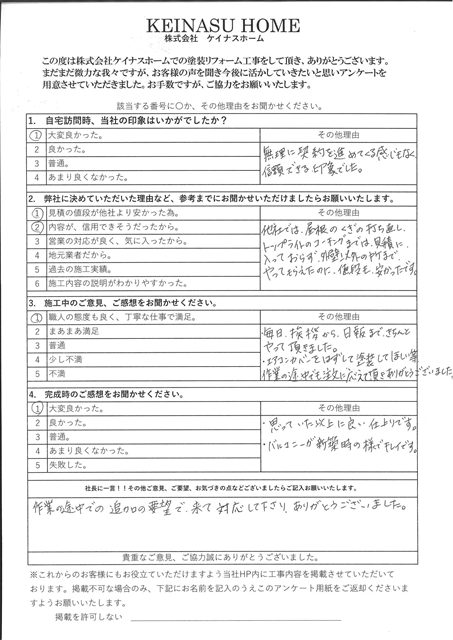 KEINASU HOME
株式会社　ケイナスホーム
この度は株式会社ケイナスホームでの塗装リフォーム工事をして頂き、ありがとうございます。
まだまだ微力な我々ですが、お客様の声を聞き今後に活かしていきたいと思いアンケートを
用意させていただきました。お手数ですが、ご協力をお願いいたします。
該当する番号に〇か、その他理由をお聞かせください。
1. 自宅訪問時、当社の印象はいかがでしたか？
① 大変良かった。 その他理由
2 良かった。
3 普通。
4 あまり良くなかった。
無理に契約を進めてくる感じもなく
信頼できる印象でした。
2. 弊社に決めていただいた理由など、参考までにお聞かせいただけましたらお願いいたします。
① 見積の値段が他社より安かった為。 その他理由
② 内容が、信用できそうだったから。
3 営業の対応が良く、気に入ったから。
4 地元業者だから。
5 過去の施工実績。
6 施工内容の説明がわかりやすかった。
他社では、屋根のくぎの打ち直し、
トップライトのコーキングまでは、見積に
入っておらず、外壁以外の所まで、
やってもらえたのに、値段も、安かったです。
3. 施工中のご意見、ご感想をお聞かせください。
① 職人の態度も良く、丁寧な仕事で満足。 その他理由
2 まあまあ満足
3 普通
4 少し不満
5 不満
毎日、挨拶から、日報まで、きちんと
やって頂きました。
・エアコンカバーをはずして塗装してほしい等、
作業の途中でも注文に応えて頂きありがとうございました。
4. 完成時のご感想をお聞かせください。
① 大変良かった。 その他理由
2 良かった。
3 普通。
4 あまり良くなかった。
5 失敗した。
・思っていた以上に良い仕上りです。
・バルコニーが新築時の様でキレイです。
社長に一言！！その他ご意見、ご要望、お気づきの点などございましたらご記入お願いします。
作業の途中での追加の要望で、来て対応して下さり、ありがとうございました。
貴重なご意見、ご協力誠にありがとうございました。
※これからのお客様にもお役立ていただけますよう当社HP内に工事内容を掲載させていただいて
おります。掲載不可な場合のみ、下記にお名前を記入のうえこのアンケート用紙をご返却くださいま
すようお願いいたします。
掲載を許可しない